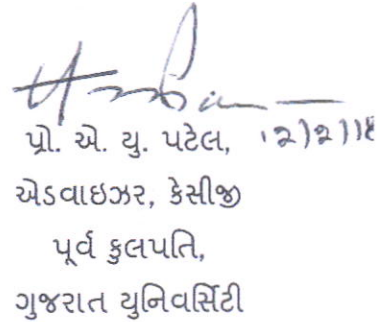 પ્રો. એ. યુ. પટેલ,
એડવાઇઝર, કેસીજી
પૂર્વ કુલપતિ,
ગુજરાત યુનિવર્સિટી